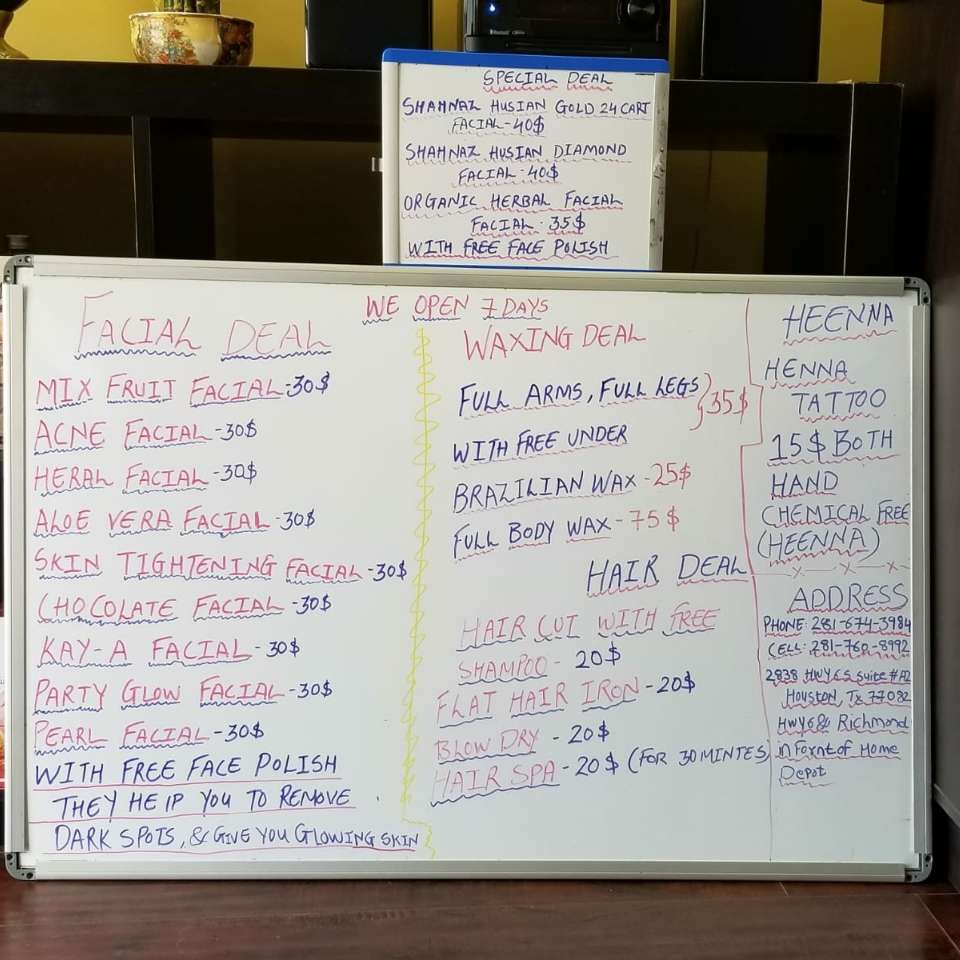 SPECIAL DEAL
SHAHNAZ HUSIAN GOLD 24 CART
FACIAL-40$
SHAHNAZ HUSIAN DIAMOND
FACIAL-40$
ORGANIC HERBAL FACIAL
FACIAL-35$
WITH FREE FACE POLISH
WE OPEN 7 DAYS
FACIAL DEAL
MIX FRUIT FACIAL-30$
ACNE FACIAL-30$
HERAL FACIAL-30$
ALOE VERA FACIAL-30$
SKIN TIGHTENING FACIAL-30$
CHOCOLATE FACIAL-30$
KAY-A FACIAL-30$
PARTY GLOW FACIAL-30$
PEARL FACIAL-30$
WITH FREE FACE POLISH
THEY HElP YOU TO REMOVE
DARK SPOTS, & GIVE YOU GLOWING SKIN
WAXING DEAL
FULL ARMS, FULL LEGS } 35$
WITH FREE UNDER
BRAZILIAN WAX-25$
FULL BODY WAX-75$
HAIR DEAL
HAIR CUT WITH FREE
SHAMPOO-20$
FLAT HAIR IRON-20$
BLOW DRY-20$
HAIR SPA-20$ (FOR 30 MINTES)
HEENNA
HENNA
TATTOO
15$ BOTH
HAND
CHEMICAL FREE
(HEENNA)
ADDRESS
PHONE: 281-674-3984
CELL: 281-760-8992
2838 HWY 6 S Suite #A2
Houston, Tx 77082
HWY 6 & Richmond
in Fornt of Home
Depot